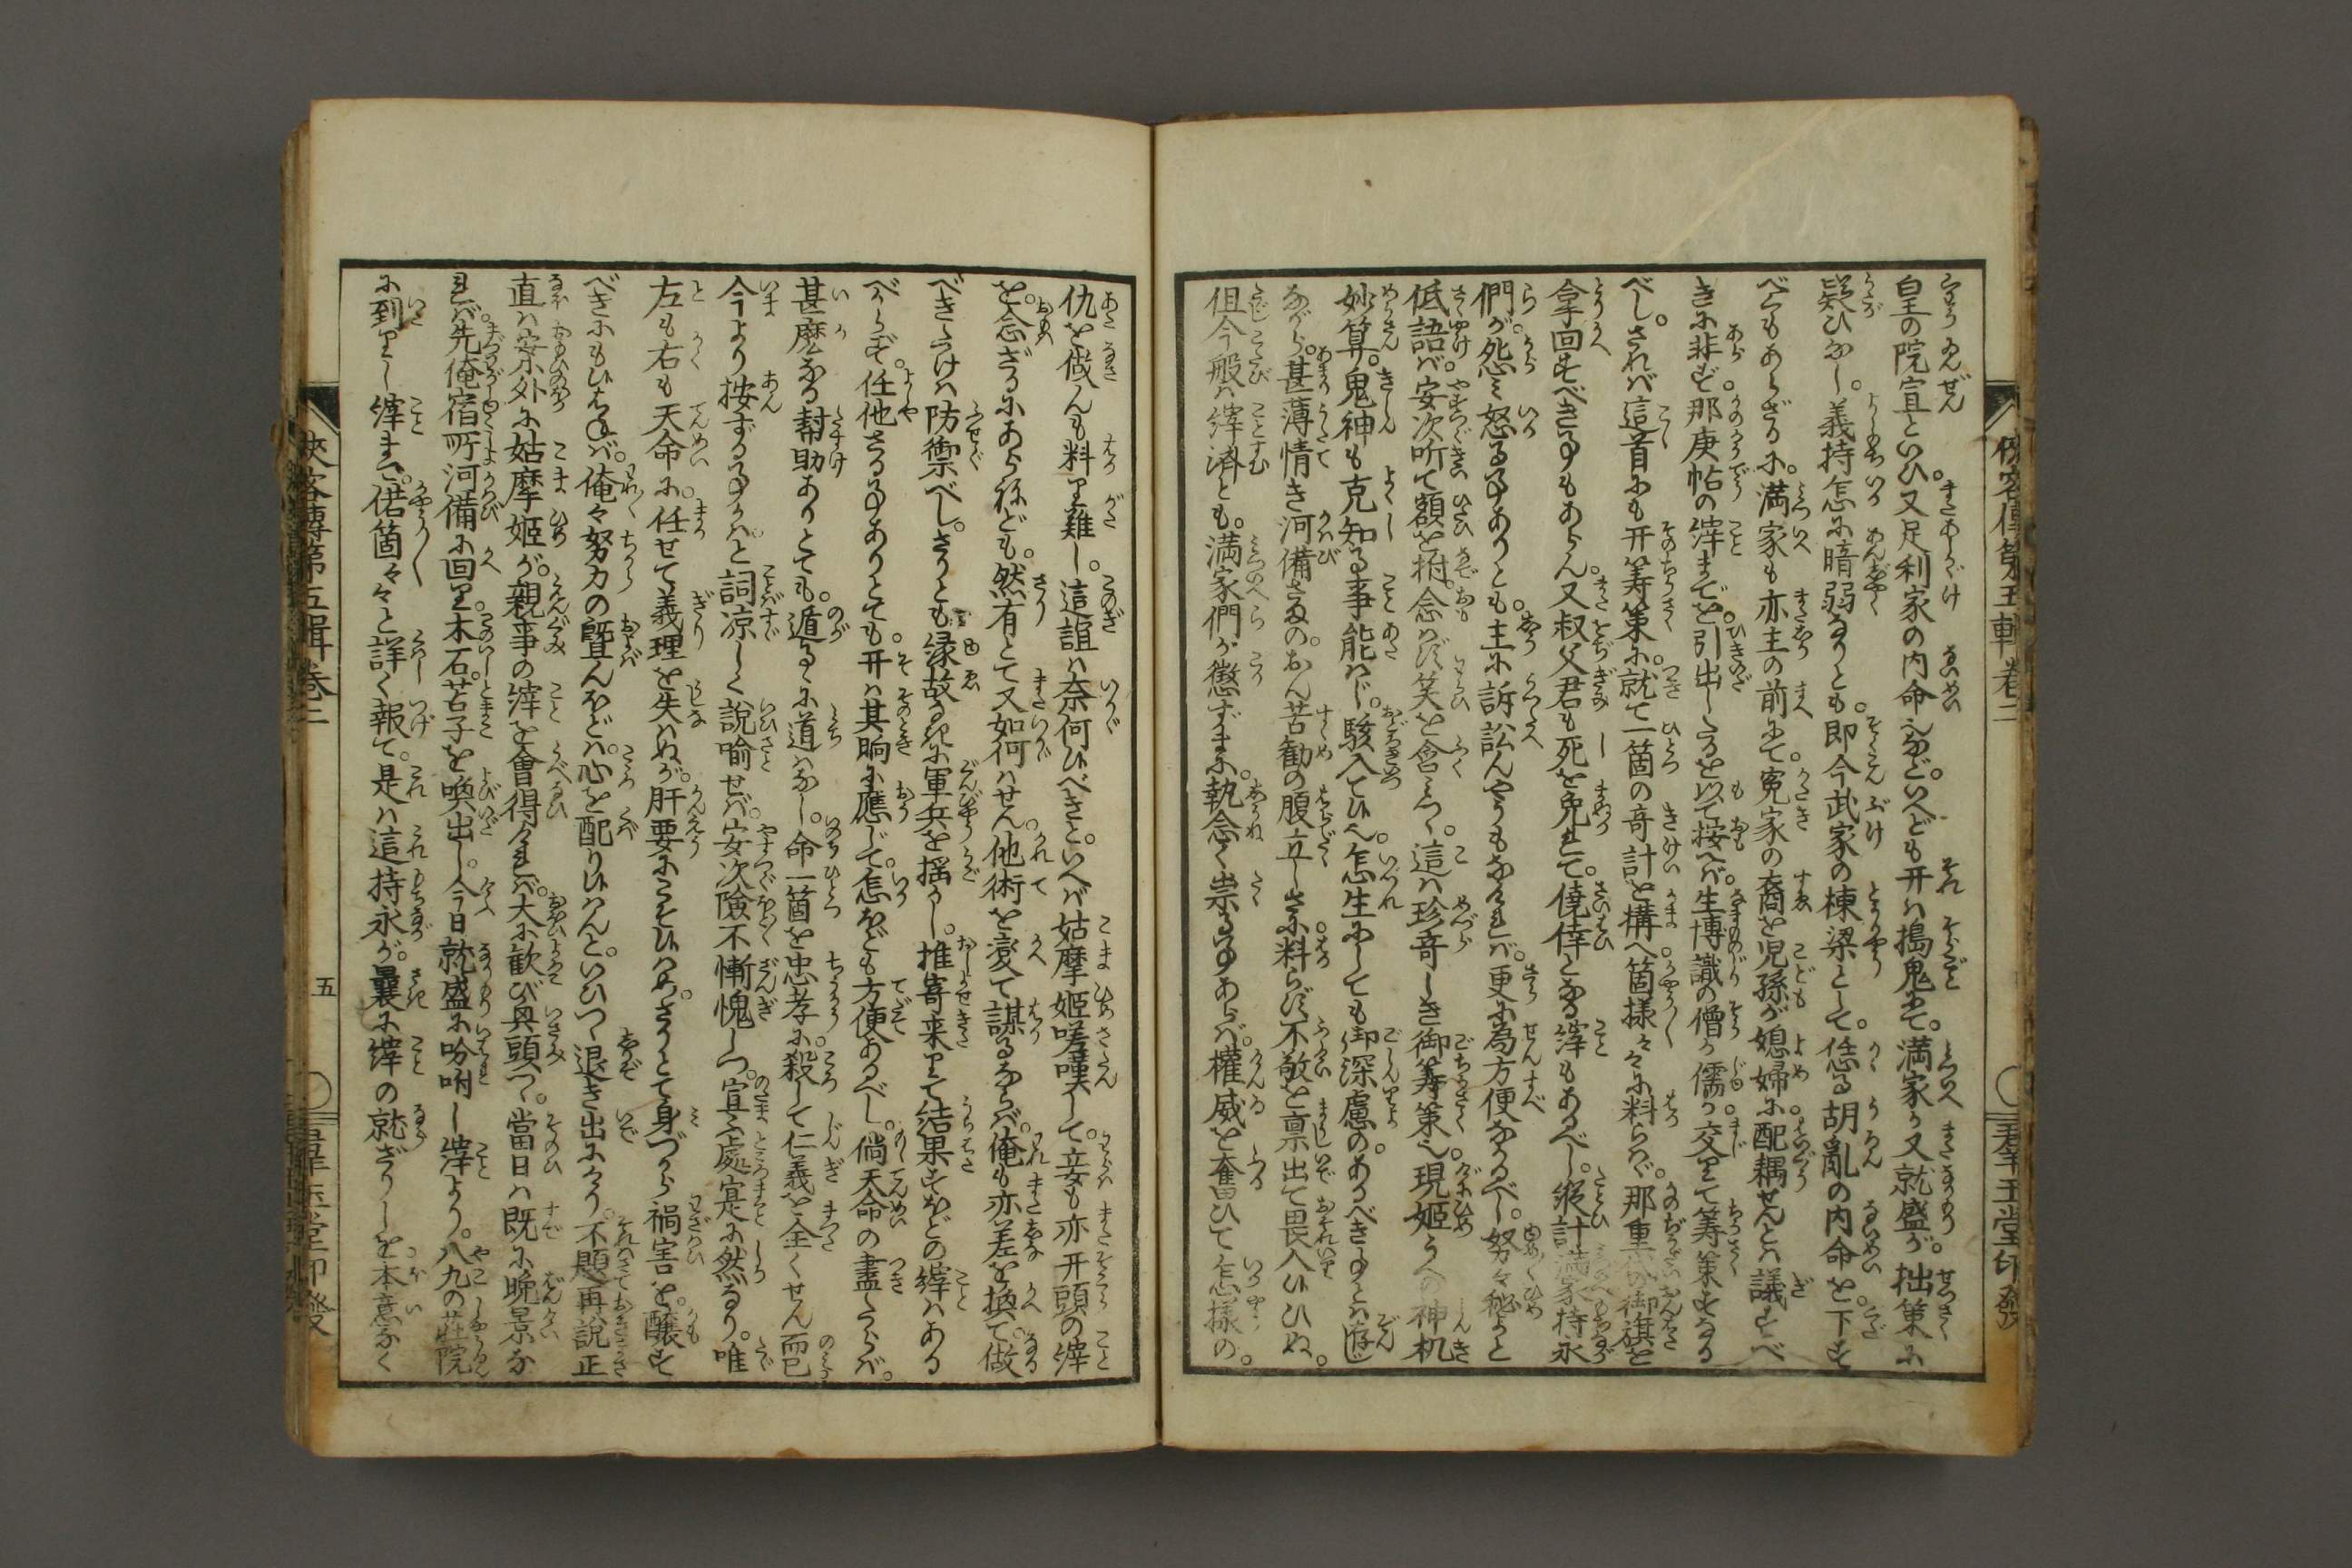 俠客傳第五輯卷二
羣玉堂印發
皇の院宣といひ。又足利家の内命之など。いへども开は搗鬼にて。満家か又就盛が。拙策に
疑ひなし。義持怎に暗弱なりとも。即今武家の棟梁として。恁る胡亂の内命を。下す
べくもあらざるに。満家も亦主の前にて。寃家の裔を児孫が媳婦に配耦せんとは議すべ
きに非ず。那庚帖の縡までを。引出したるを以て按へば。生博識の僧か儒か。交りて筹策すなる
べし。されば這首にも开筹策に。就て一箇の奇計を構へ。箇様々々に料らば。那重代の御旗を
拿回すべき事もあらん。又叔父君も死を免れて。僥倖となる縡もあるべし。縦計満家持永
們が。怨み怒る事ありとも。主に訴訟んやうもなければ。更に為方便なかるべし。努々祕よと
低語ば。安次听て額を拊。念はず笑を含みつゝ。這は珍奇しき御筹策之。現姫うへの神机
妙算。鬼神も克知る事能はじ。駭入てひへ。怎生にしても御深慮の。あるべき事とは猜し
ながら。甚薄情き河備さまの。おん苦勧の腹立しさに料らず。不敬を禀出て畏入ひひぬ。
但今般は縡済とも。満家們が懲ずまに。執念く祟る事あらば。權威を奮ひて怎様の。
仇を做んも料り難し。這誼は奈何ひべき。といへば姑摩姫嗟嘆して。妾も亦开頭の縡
を。念ざるにあらねども。然有とて又如何はせん。他術を変て謀るならば。俺も亦差を換て。做
べきたけは防禦べし。さりとも緑故なきに軍兵を揺かし。推寄来りて結果すほどの縡はある
べからず。任他さる事ありとても。开は其晌に應じて。怎ほども方便あるべし。倘天命の盡たらば。
甚麼なる幇助ありとても。遁るゝに道はなし。命一箇を忠孝に。殺して仁義を全くせん而已
今より按ずる事かは。と詞凉しく說喻せば。安次險不慚愧しつ。宣ふ處寔に然なり。唯
左も右も天命に。任せて義理を失はぬが。肝要にこそひはめ。さりとて身づから禍害を。醸す
べきにもひはねば。俺々努力の曁んほどは。心を配りひはん。といひつゝ退き出にけり。不題再說正
直は案外に姑摩姫が。親事の縡を會得ければ。大に歓び與頭つゝ。當日は既に晩景な
れば。先俺宿所河備に回り。木石。苫子を喚出し。今日就盛に吩咐し縡より。八九の莊院
に到りし縡まで。偌箇々々と詳く報て。是は這持永が。曩に縡の就ざりしを本意なく
俠客傳第五輯卷二
五
羣玉堂印發